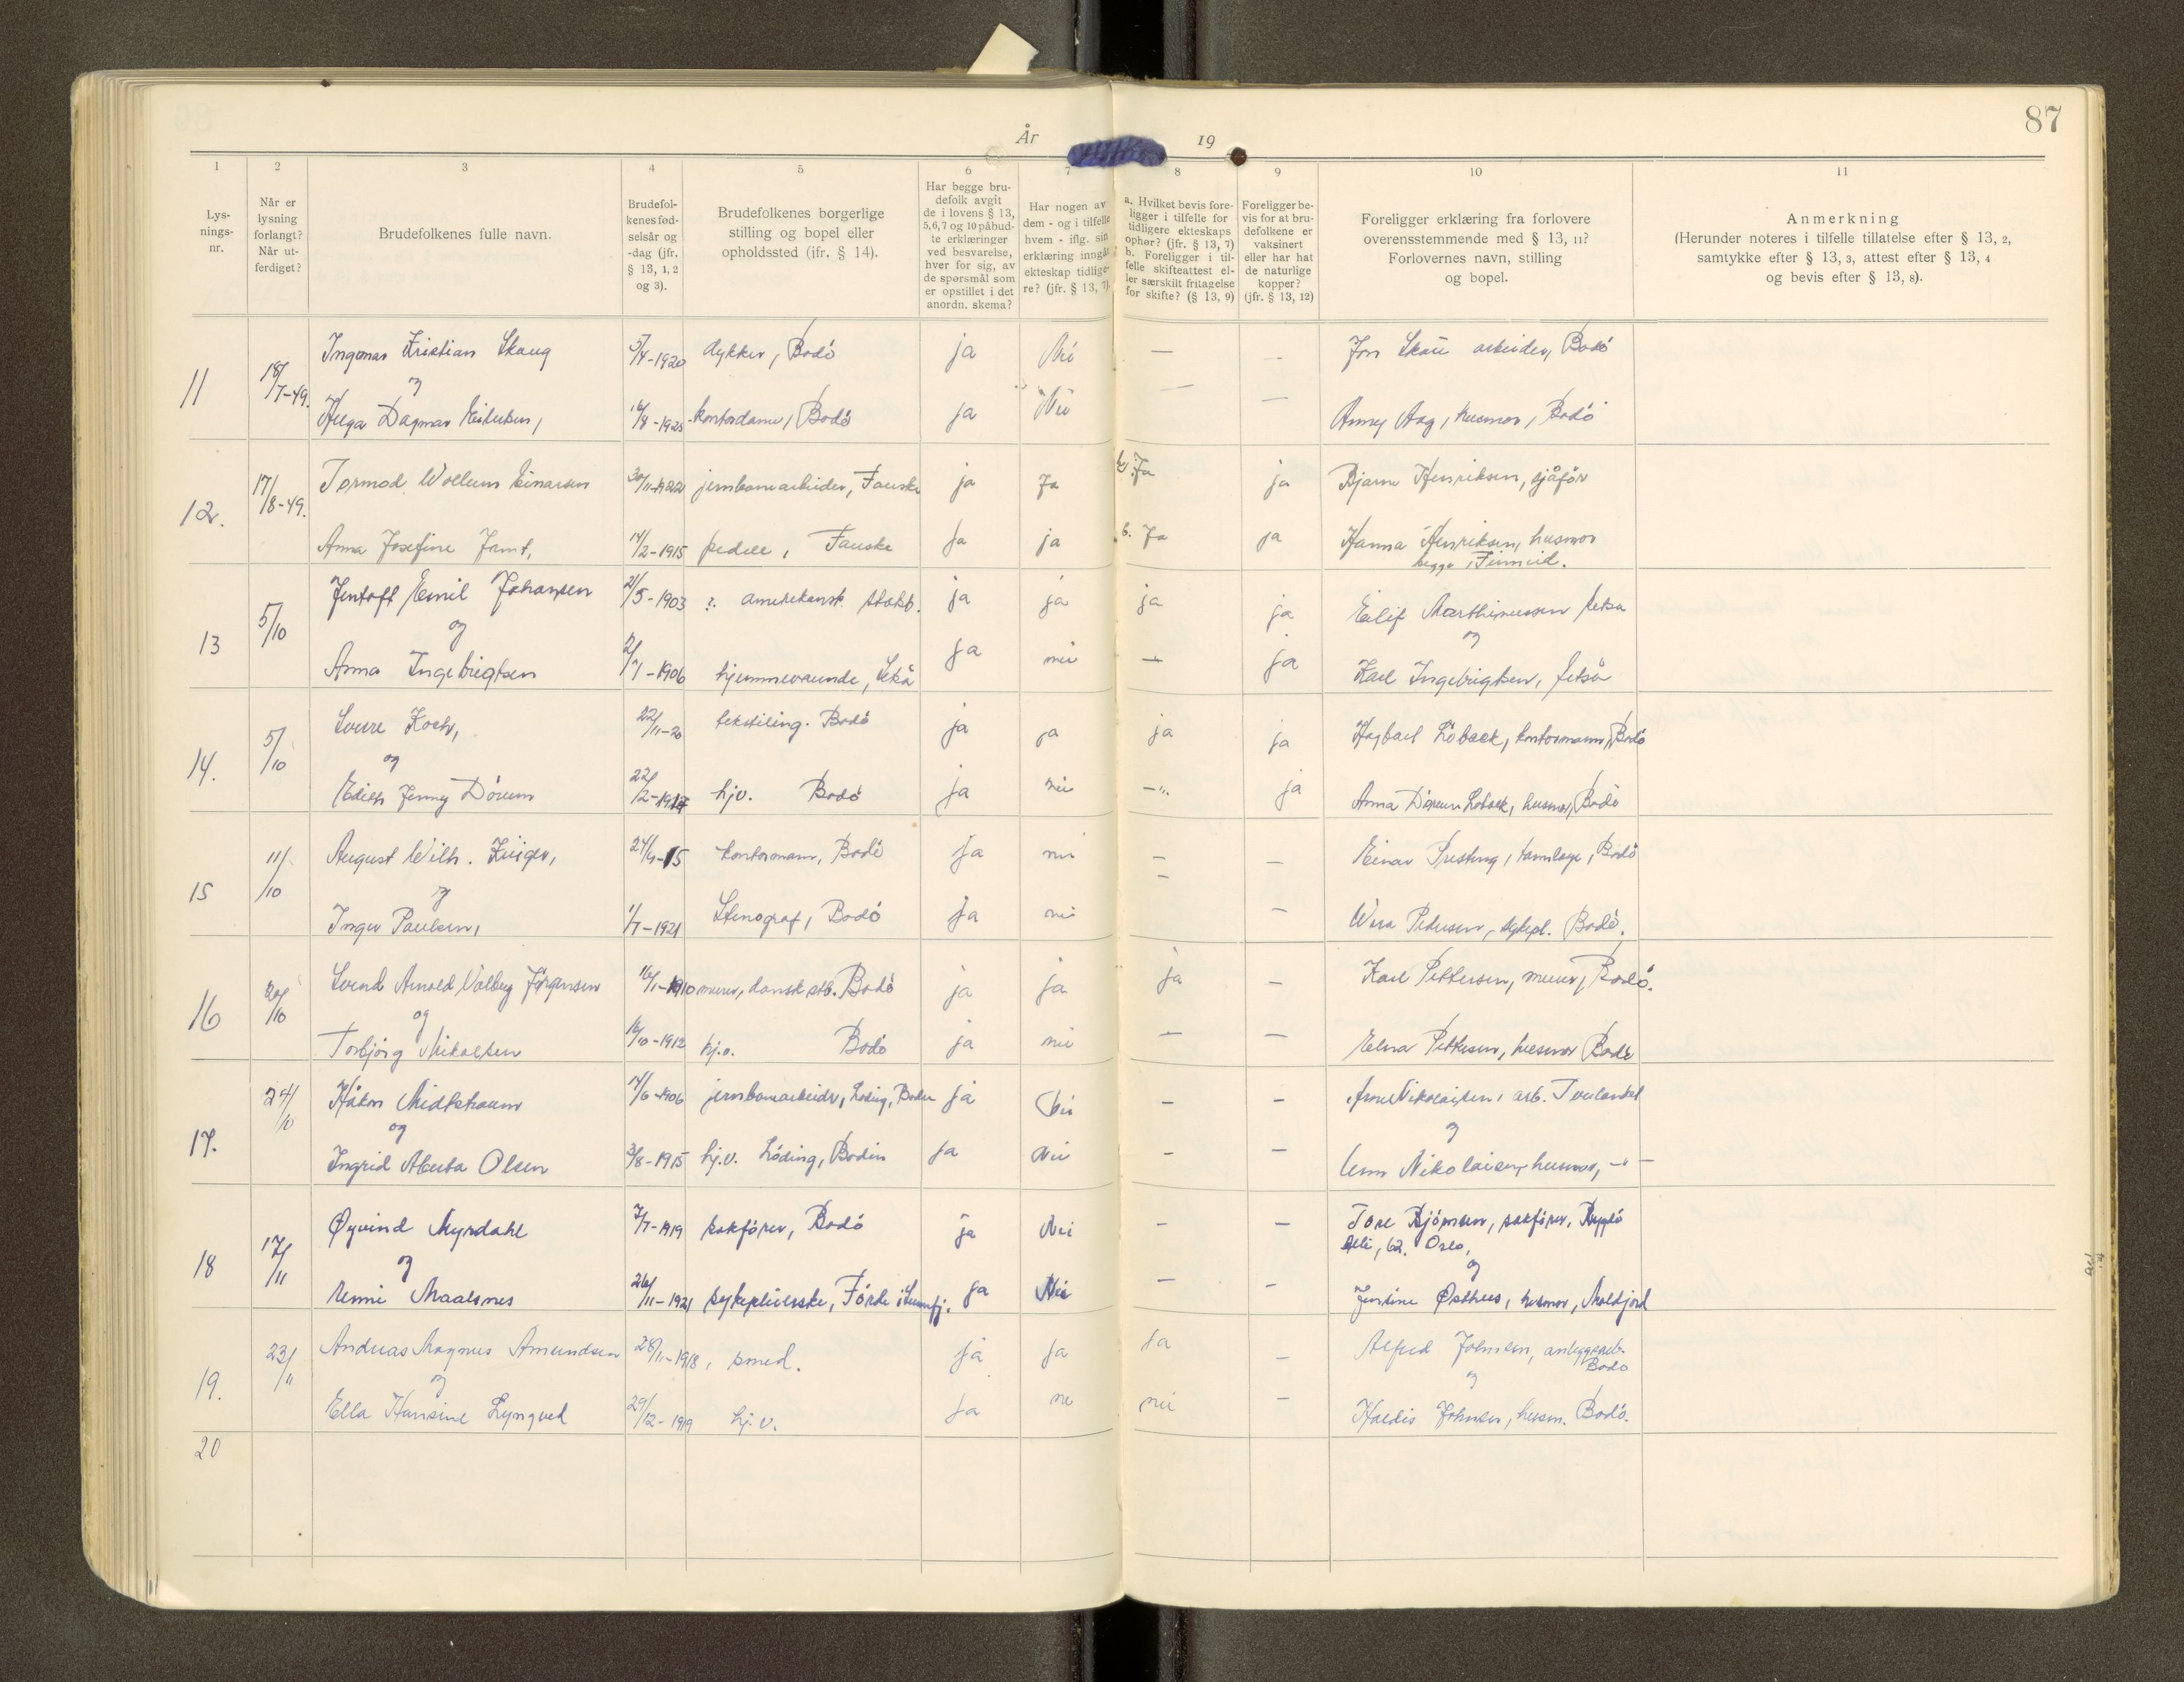 87
År 19
1 2 3 4 5 6 7 8 9 10 11
Lys-
nings-
nr.
Når er
lysning
forlangt?
Når ut-
ferdiget?
Brudefolkenes fulle navn.
Brudefol-
kenes fød-
selsår og
-dag (jfr.
§ 13, 1, 2
og 3).
Brudefolkenes borgerlige
stilling og bopel eller
opholdssted (jfr. § 14).
Har begge bru-
defolk avgit
de i lovens § 13,
5, 6, 7 og 10 påbud-
te erklæringer
ved besvarelse,
hver for sig, av
de spørsmål som
er opstillet i det
anordn. skema?
Har nogen av
dem - og i tilfelle
hvem - iflg. sin
erklæring inngåt
ekteskap tidlige-
re? (jfr. § 13, 7).
a. Hvilket bevis fore-
ligger i tilfelle for
tidligere ekteskaps
ophør? (jfr. § 13, 7)
b. Foreligger i til-
felle skifteattest el-
ler særskilt fritagelse
for skifte? (§ 13, 9)
Foreligger be-
vis for at bru-
defolkene er
vaksinert
eller har hat
de naturlige
kopper?
(jfr. § 13, 12)
Foreligger erklæring fra forlovere
overensstemmende med § 13, 11?
Forlovernes navn, stilling
og bopel.
Anmerkning
(Herunder noteres i tilfelle tillatelse efter § 13, 2,
samtykke efter § 13, 3, attest efter § 13, 4
og bevis efter § 13, 8).
11 18/7-49. Ingomar Kristian Skaug 5/4-1920 dykker, Bodö ja Nei — — Jon arbeider, Bodö
og
Helga Dagmar 16/8-1925 kontordame, Bodö ja Nei — — Anny Aag, husmor, Bodö
12. 17/8-49. Tormod Einarsen 30/11-1922 jernbanearbeider, Fauske ja Ja Ja ja Bjarne Henriksen, sjåför
Anna Josefine 14/2-1915 pedell, Fauske Ja ja b. Ja ja Hanna Henriksen, husmor
begge, Finneid.
13 5/10 Jentoft Emil Johansen 21/5-1903 ?. amerikansk statsb. ja ja ja ja Eilif Marthinussen
og og
Anna Ingebrigtsen 2/7-1906 hjemmeværende, ja nei — ja Karl Ingebrigtsen,
14. 5/10 Sverre Koch, 22/11-20 tekstiling. Bodö ja ja ja ja Hagbart Löbæck, kontormann, Bodö
og
Edith Jenny Dörum 22/2-1917 hjv. Bodö ja nei —"— ja Anna Dörum Löback, husmor, Bodö
15 11/10 August Wilh. 24/4-15 kontormann, Bodö Ja nei — — Einar tannlæge, Bodö
og —
Inger Paulsen, 1/7-1921 Stenograf, Bodö Ja nei — Wera Petersen, sykepl. Bodö.
16 20/10 Svend Arnold Valberg Jörgensen 16/1-1910 murer, dansk stb. Bodö ja ja ja — Karl Pettersen, murer, Bodö.
og
Torbjörg Mikalsen 16/10-1912 hj.v. Bodö ja nei — — Elna Pettersen, husmor Bodö
17. 24/10 Håkon Midtstraum 14/6-1906 jernbanearbeider, Löding, Bodin ja Nei — — Arne Nikolaisen, arb. Tverlandet
og og
Ingrid Alberta Olsen 3/8-1915 hj.v. Löding, Bodin ja Nei — — Nikolaisen, husmor, —"—
18 17/11 Øyvind Myrdahl 7/7-1919 sakförer, Bodö ja Nei — — Tore Björnsen, sakförer, Bygdö
Alle, 62. Oslo,
og og
Maalsnes 26/11-1921 sykepleierske, Förde i Sunnfj. ja Nei — — Jensine Østhus, husmor, Moldjord
19. 23/11 Andreas Magnus Amundsen 28/11-1918, smed. ja ja Ja — Alfred Johnsen, anleggsarb.
Bodö
og og
Ella Hansine Lyngved 29/12-1919 hj.v. Ja ne nei — Haldis Johnsen, husm. Bodö.
20